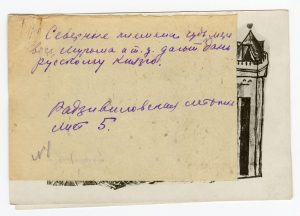 Северные племена чудь, меря
весь мурома и т. д. дают дань
русскому князю.
Радзивиловская летопись
лист 5.
№